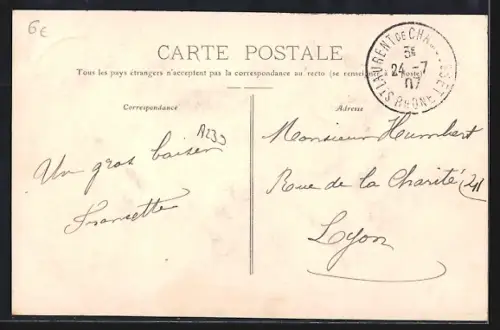 6€
CARTE POSTALE
Tous les pays étrangers n'acceptent pas la correspondance au recto (se renseigner à la poste)
ST LAURENT DE CHAMOUSSET
5E
24 -7
07
RHONE
Correspondance
Adresse
A239
Un gros baiser
Francette
Monsieur Humbert
Rue de la Charité 24
Lyon